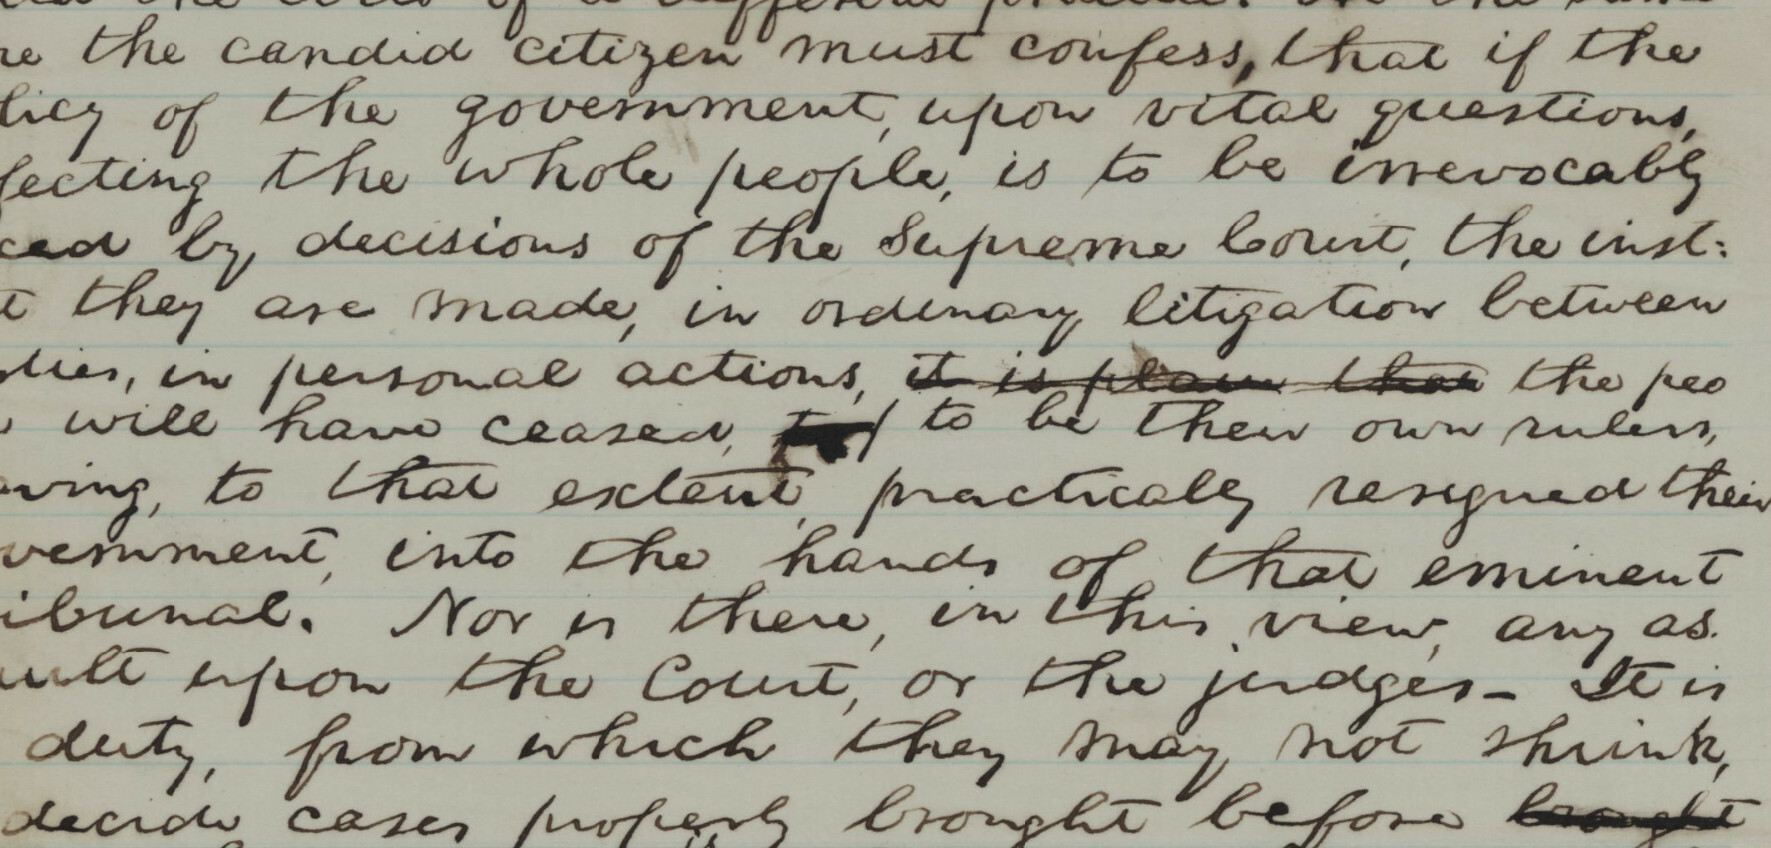 and the evils of a different practice. At the same
re the candid citizen must confess, that if the
licy of the government, upon vital questions,
fecting the whole people, is to be irrevocably
ced by, decisions of the Supreme Court, the inst:
t they are made, in ordinary litigation between
rties, in personal actions, it is plain that the peo
will have ceased, to be their own rulers,
aving, to that extent, practically resigned their
vernment, into the hands of that eminent
ibunal. Nor is there, in this view, any as.
ult upon the Court, or the judges- It is
duty, from which they may not shrink,
decide cases properly brought before brought